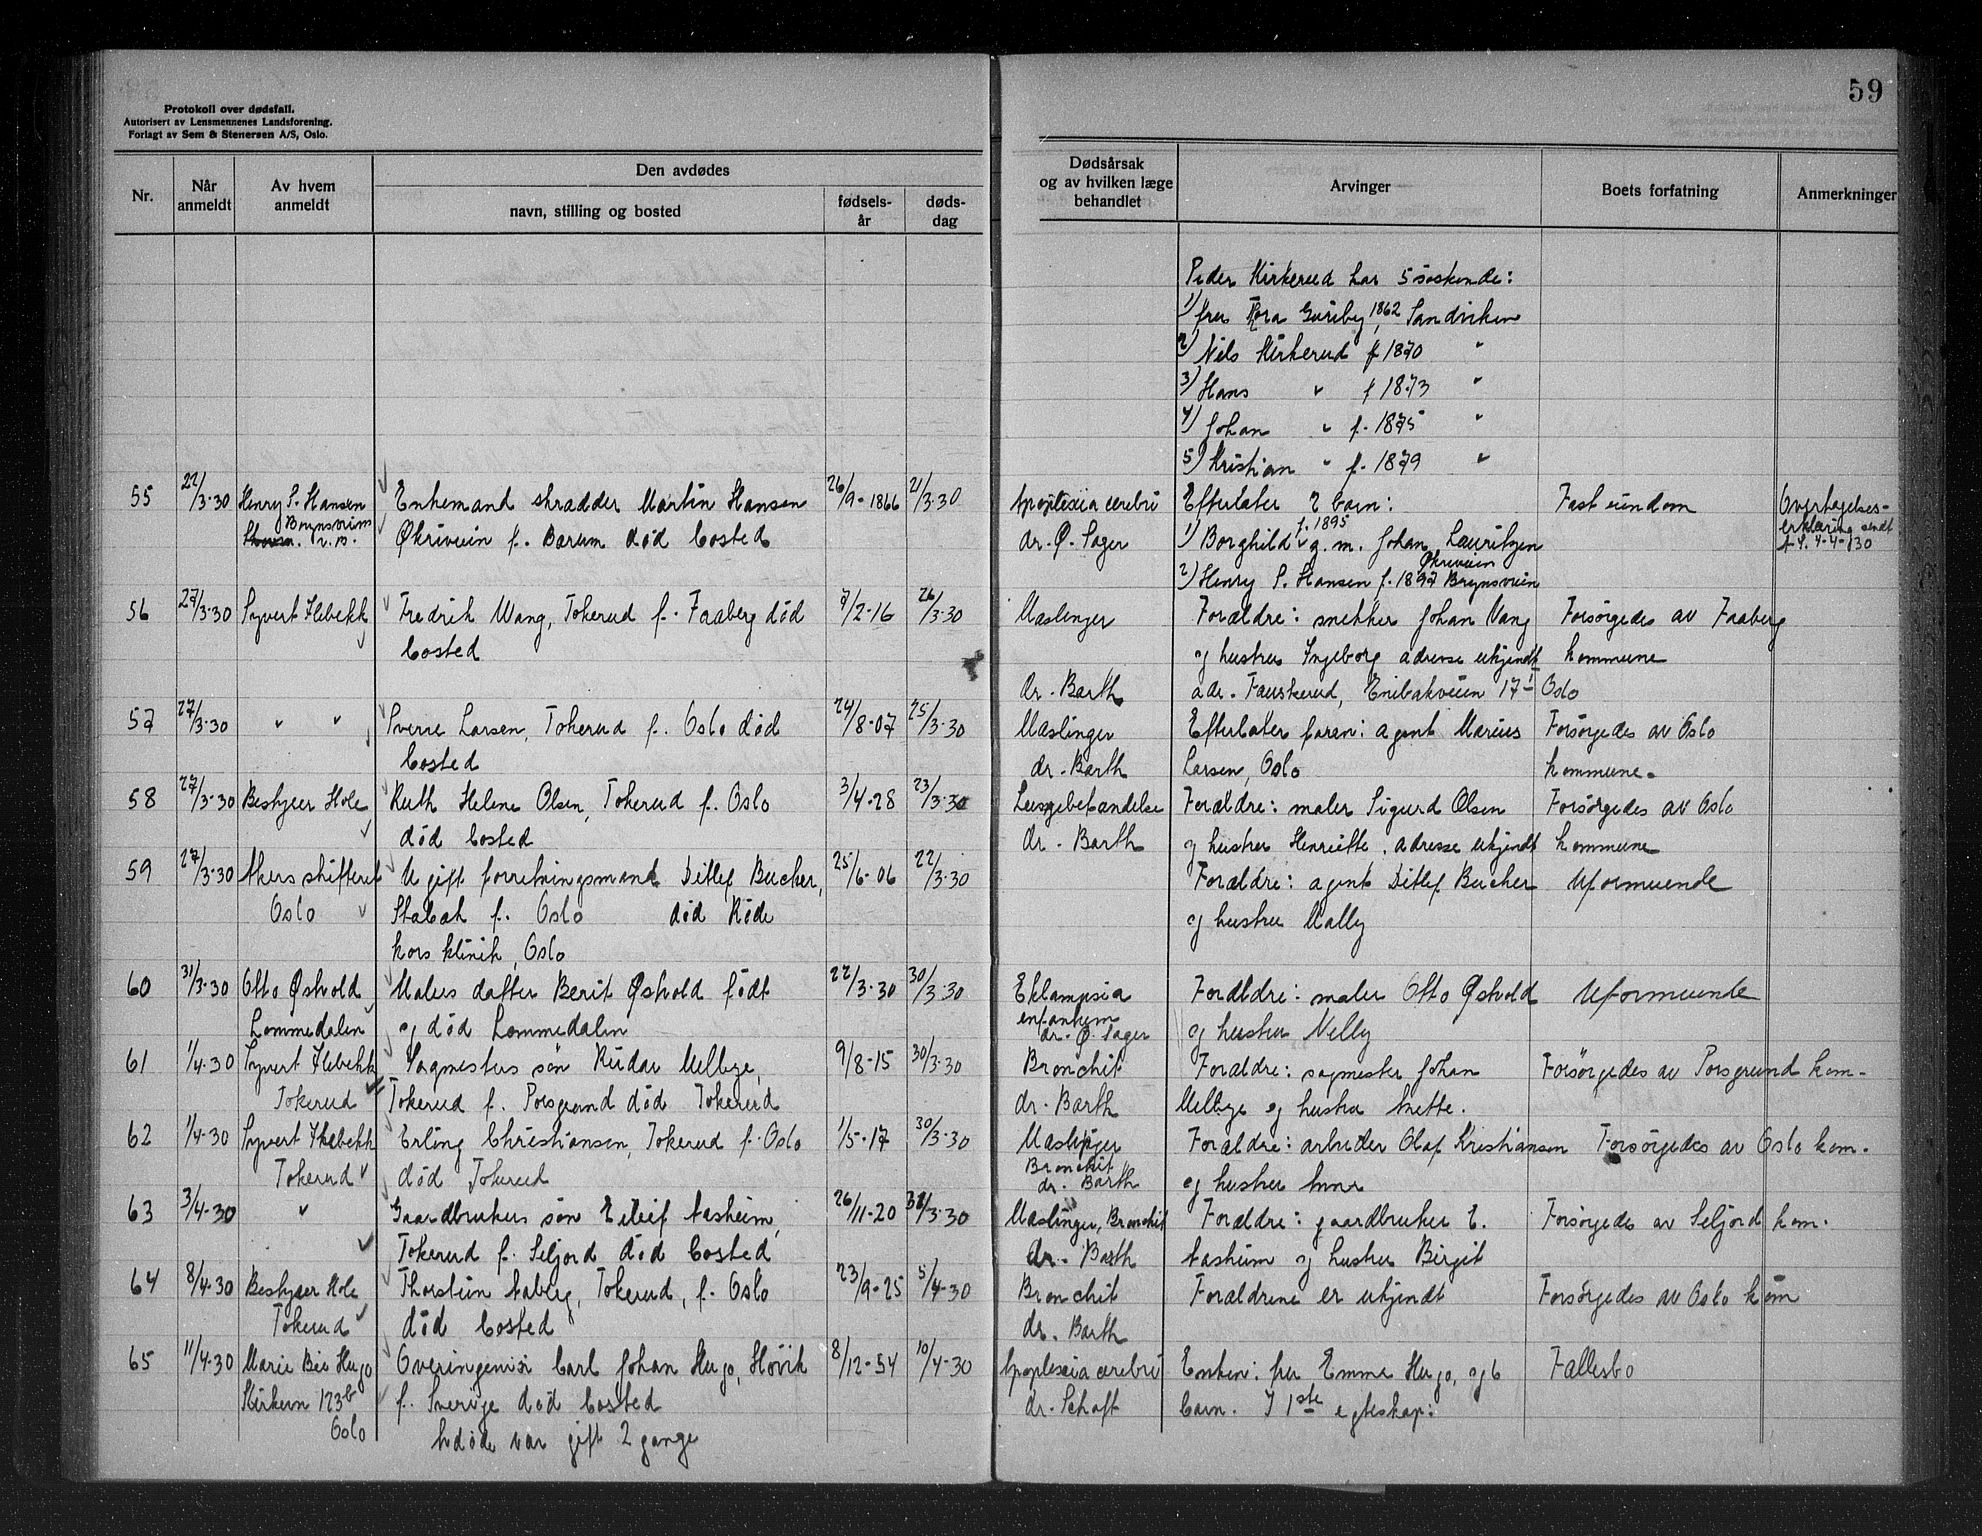 Protokoll over dødsfall.
Autorisert av Lensmennenes Landsforening.
Forlagt av Sem & Stenersen A/S, Oslo.
59
Nr.
Når anmeldt
Av hvem anmeldt
Den avdødes
navn, stilling og bosted
fødsels-år
døds-dag
Dødsårsak og av hvilken læge behandlet
Arvinger
Boets forfatning
Anmerkninger
Peder Kirkerud har 5 søskende:
1) fru Thora Guriby, 1862 Sandviken
2) Nils Kirkerud f 1870 "
3) Hans " f 1873 "
4) Johan " f. 1875 "
5) Kristian " f. 1879 "
55 22/3-30 Henry S. Hansen Enkemand skrædder Martin Hansen 26/9-1866 21/3-30 Apoplexia cerebri Efterlater 2 barn: Fast eiendom Overtagelses-
Brynsveien Økriveien f. Bærum død bosted dr. Ø. Sager 1) Borghild f. 1895 g. m. Johan Lauritzen Økriveien erklæring sendt
4-4-30
2) Henry S. Hansen f. 1897 Brynsveien
56 27/3-30 Syvert Flebekk Fredrik Wang, Tokerud f. Faaberg død 7/2-16 26/3-30 Mæslinger Forældre: snekker Johan Vang Forsørgedes av Faaberg
bosted og hustru Ingeborg adresse ukjendt kommune
dr. Barth adr. Fauskerud, Enebakveien 17 I Oslo
57 27/3-30 " " Sverre Larsen, Tokerud f. Oslo død 24/8-07 25/3-30 Mæslinger Efterlater faren: agent Marius Forsørgedes av Oslo
bosted dr. Barth Larsen, Oslo kommune.
58 27/3-30 Bestyrer Hole Ruth Helene Olsen, Tokerud f. Oslo 3/4-28 23/3-30 Lungebetændelse Forældre: maler Sigurd Olsen Forsørgedes av Oslo
død bosted dr. Barth og hustru Henriette, adresse ukjendt kommune
59 27/3-30 Akers skifterett Ugift forretningsmand Ditlef Bucher, 25/6-06 22/3-30 Forældre: agent Ditlef Bucher Uformuende
Oslo Stabæk f. Oslo død Røde og hustru Mally
kors klinik, Oslo
60 31/3-30 Otto Østvold Malers datter Berit Østvold født 22/3-30 30/3-30 Eklampsia Forældre: maler Otto Østvold Uformuende
Lommedalen og død Lommedalen enfantum dr. Ø. Sager og hustru Nelly
61 1/4-30 Syvert Flebekk Sagmesters søn Reidar Melbye, 9/8-15 30/3-30 Bronchit Forældre: sagmester Johan Forsørgedes av Porsgrund kom-
Tokerud Tokerud f. Porsgrund død Tokerud dr. Barth Melbye og hustru Anette.
62 1/4-30 Syvert Flebekk Erling Christiansen, Tokerud f. Oslo 1/5-17 30/3-30 Mæslinger Forældre: arbeider Olaf Kristiansen Forsørgedes av Oslo kom-
Tokerud død Tokerud Bronchit dr. Barth og hustru Anna
63 3/4-30 " Gaardbrukers søn Eileif Aasheim, 26/11-20 31/3-30 Mæslinger, Bronchit Forældre: gaardbruker E. Forsørgedes av Seljord kom-
Tokerud f. Seljord død bosted dr. Barth Aasheim og hustru Birgit
64 8/4-30 Bestyrer Hole Thorstein Aaberg, Tokerud, f. Oslo 23/9-25 5/4-30 Bronchit Forældrene er ukjendt Forsørgedes av Oslo kom
Tokerud død bosted dr. Barth
65 11/4-30 Marie Bie Hugo Overingeniør Carl Johan Hugo, Høvik 8/12-54 10/4-30 Apoplexia cerebri Enken: fru Emma Hugo, og 6 Fallesbo
Kirkevn 123b f. Sverige død bosted dr. Schaft barn. I 1ste egteskap:
Oslo Avdøde var gift 2 gange